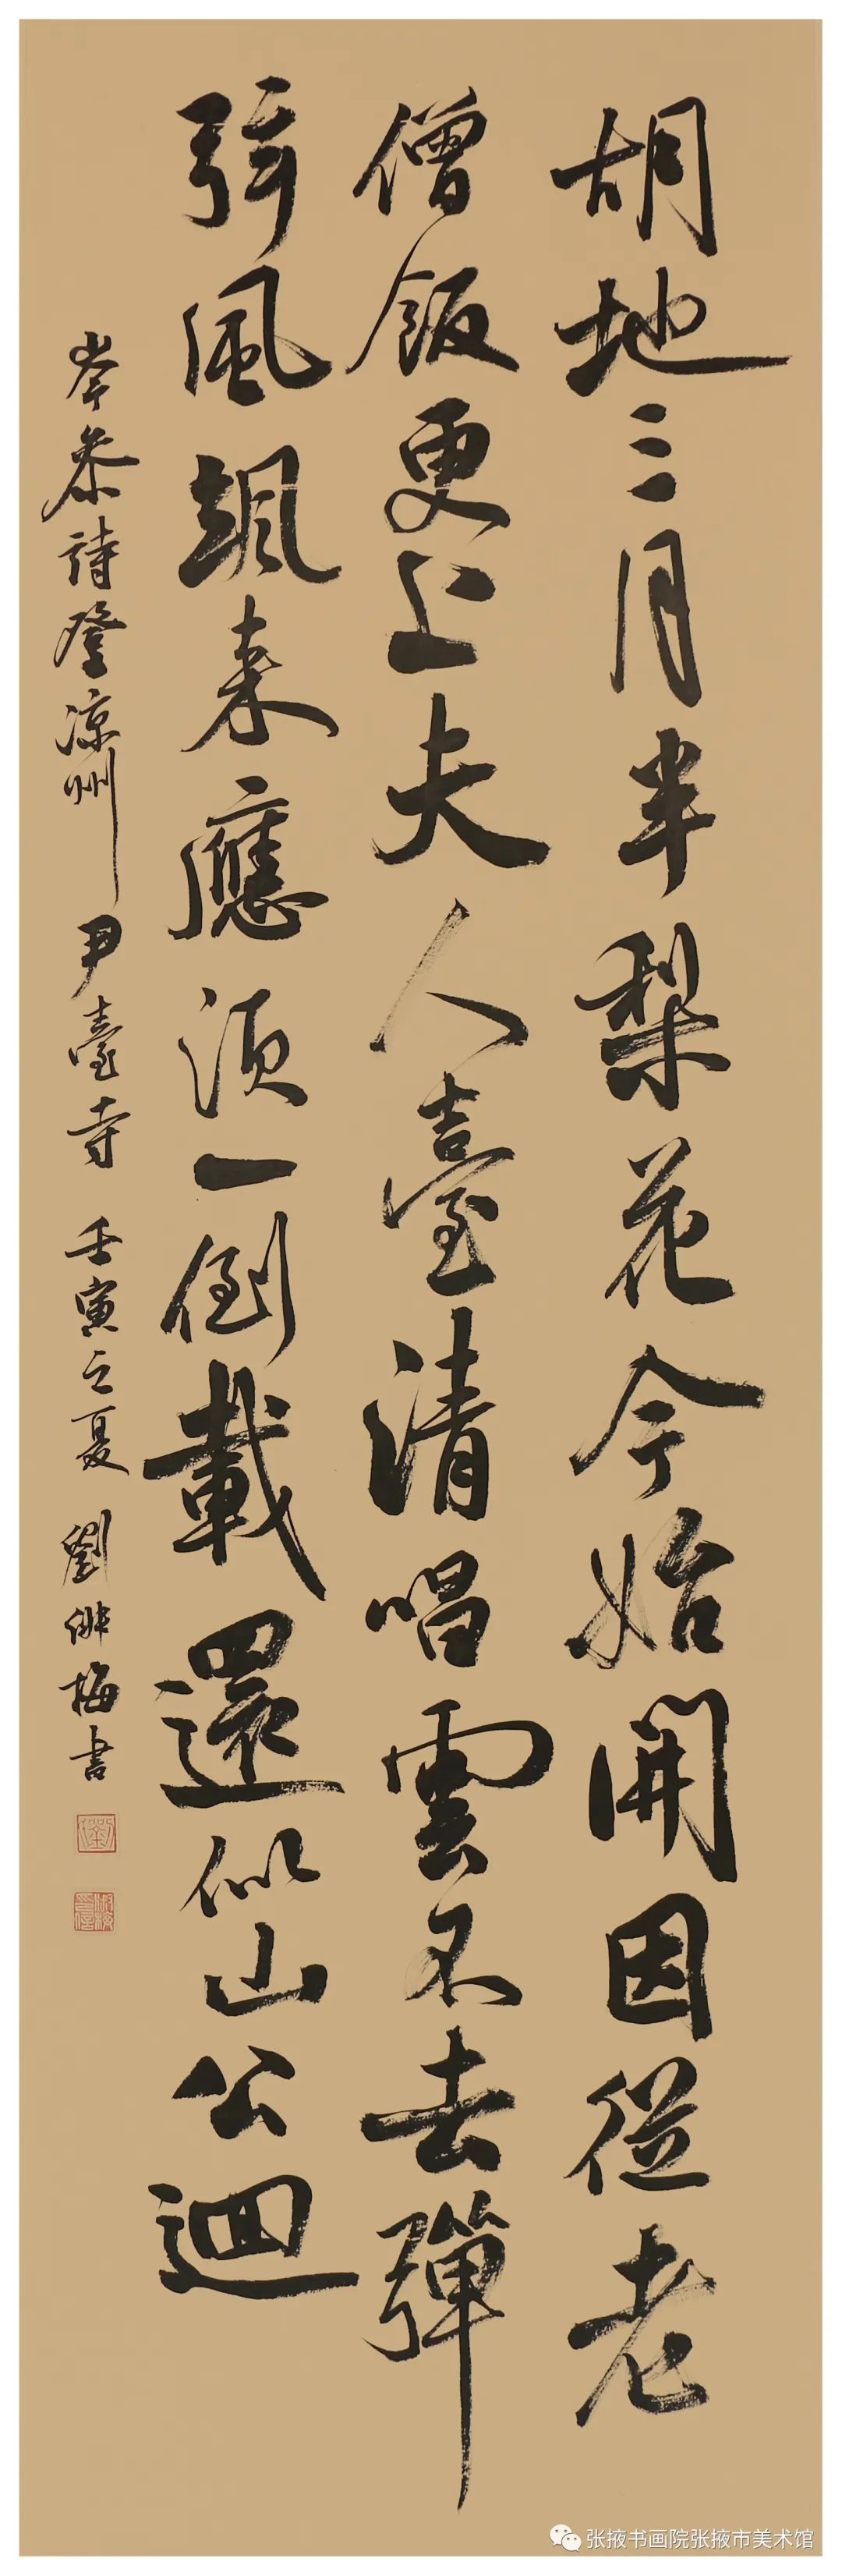 胡地三月半梨花今始開因從老
僧飯更上夫人臺清唱雲不去彈
弦風颯來應須一倒載還似山公迴
岑參詩登凉州尹臺寺 壬寅之夏 劉梅書
劉
张掖书画院张掖市美术馆